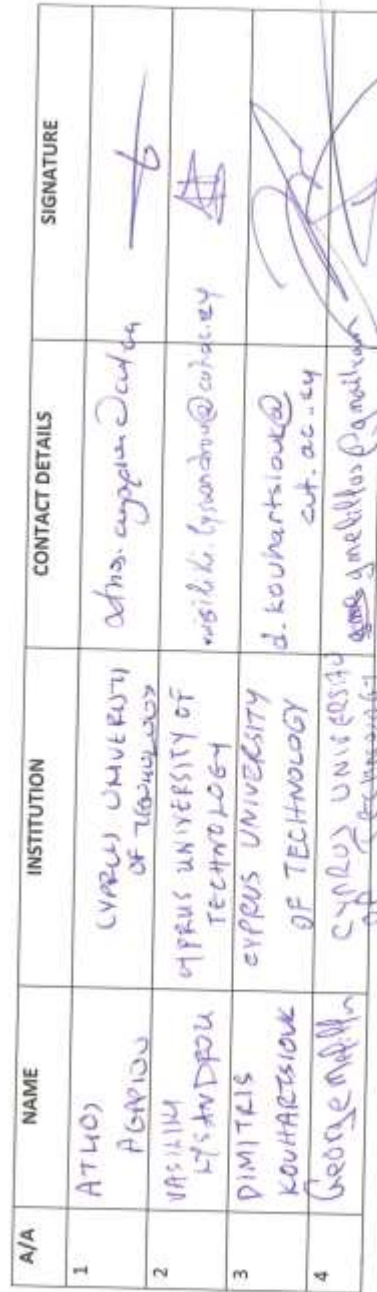 A/A NAME INSTITUTION CONTACT DETAILS SIGNATURE
1
ATHOS
AGAPIOU
CYPRUS UNIVERSITY
OF TECHNOLOGY
2
VASILIKI
LYSANDROU
CYPRUS UNIVERSITY OF
TECHNOLOGY
vasiliki.lysandrou@cut.ac.cy
3
DIMITRIS
KOUHARTSIOUK
CYPRUS UNIVERSITY
OF TECHNOLOGY
d.kouhartsiouk@
cut.ac.cy
4
George
CYPRUS UNIVERSITY
OF Technology